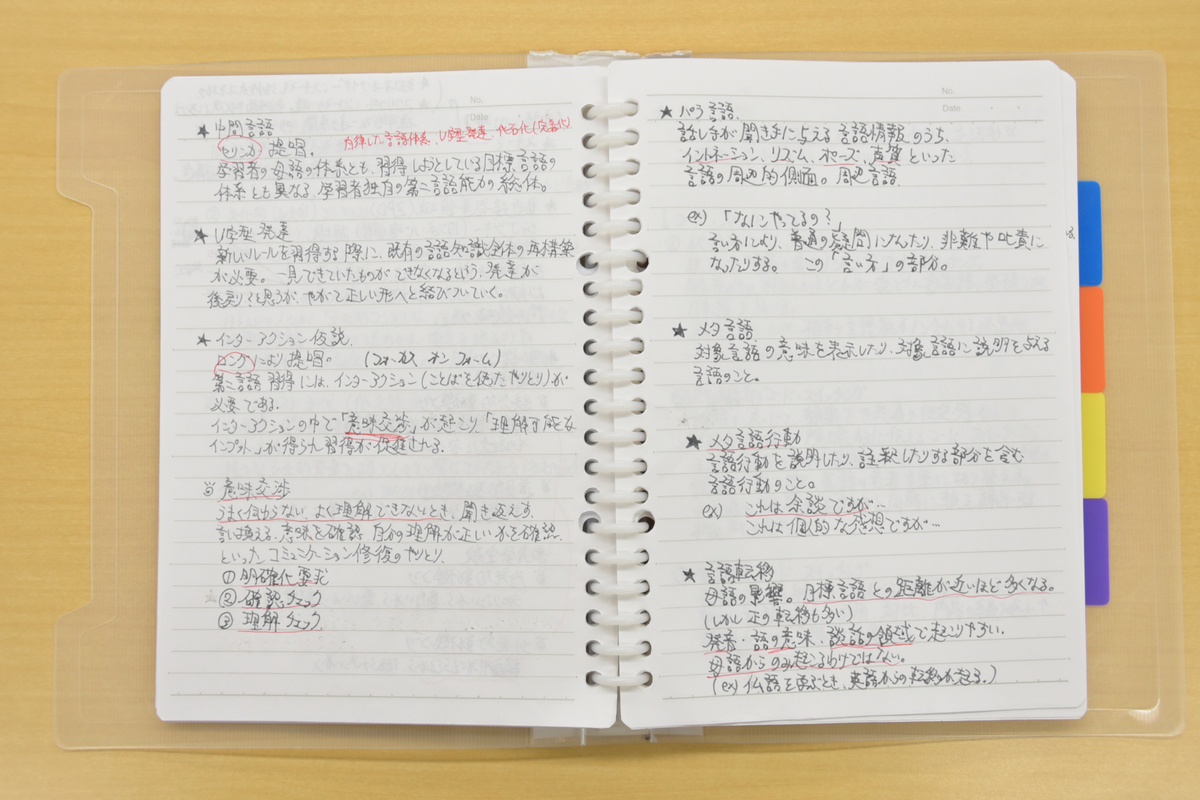 No.
Date
★ 中間言語
セリンカー 提唱。
自律した言語体系、U字型発達、化石化(定着化)
学習者の母語の体系とも、習得しようとしている目標言語の
体系とも異なる、学習者独自の第二言語能力の総体。
★ U字型発達
新しいルールを習得する際に、既有の言語知識全体の再構築
が必要。一見できていたものができなくなるという、発達が
後戻りくと思うが、やがて正しい形へと結びついていく。
★ インターアクション仮説
ロングにより提唱。 (フォーカス オン フォーム)
第二言語習得には、インターアクション(ことばを使ったやりとり)が
必要である。
インターアクションの中で「意味交渉」が起こり「理解可能な
インプット」が得られ習得が促進される。
意味交渉
うまく伝わらない、よく理解できないとき、聞き返えす、
言い換える、意味を確認、自分の理解が正しいかを確認、
といったコミュニケーション修復のやりとり。
① 明確化要求
② 確認チェック
③ 理解チェック
No.
Date
★ パラ言語
話し手が聞き手に与える言語情報のうち、
イントネーション、リズム、ポーズ、声質といった
言語の周辺的側面。周辺言語
ex) 「なにやってるの?」
言い方により、普通の疑問になったり、非難や叱責に
なったりする。 この「言い方」の部分。
★ メタ言語
対象言語の意味を表示したり、対象言語に説明を与える
言語のこと。
★ メタ言語行動
言語行動を説明したり、注釈したりする部分を含む
言語行動のこと。
ex) これは余談ですが…
これは個人的な感想ですが…
★ 言語転移
母語の影響。目標言語との距離が近いほど多くなる。
(しかし正の転移も多い)
発音・語の意味・談話の領域で起こりやすい。
母語からのみ起こるわけではない。
(ex) 仏語を学ぶとき、英語からの転移が起る。)